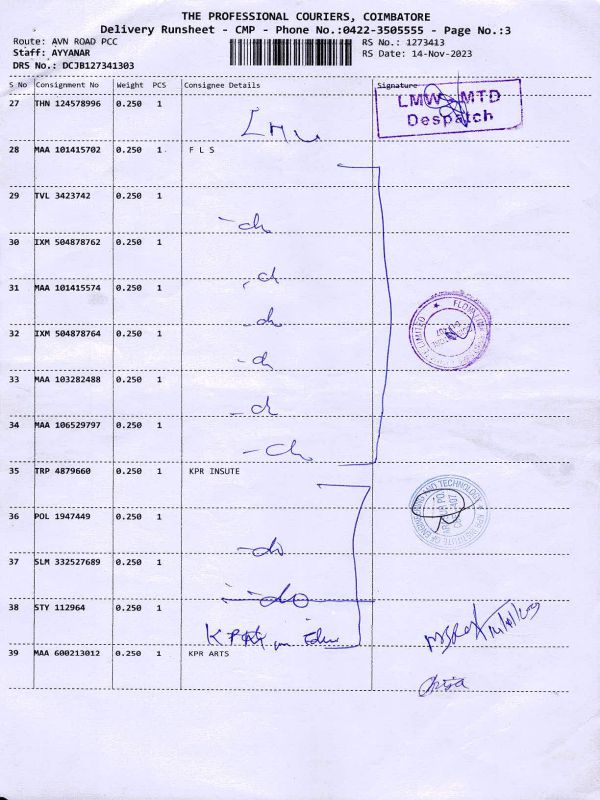 THE PROFESSIONAL COURIERS, COIMBATORE
Delivery Runsheet - CMP - Phone No.:0422-3505555 - Page No.:3
Route: AVN ROAD PCC
RS No.: 1273413
Staff: AYYANAR
RS Date: 14-Nov-2023
DRS No.: DCJB127341303
S No Consignment No Weight PCS Consignee Details Signature
27 THN 124578996 0.250 1
LMW MTD
Despatch
28 MAA 101415702 0.250 1 F L S
29 TVL 3423742 0.250 1
-do
30 IXM 504878762 0.250 1
-do
31 MAA 101415574 0.250 1
-do
32 IXM 504878764 0.250 1
-do
33 MAA 103282488 0.250 1
-do
34 MAA 106529797 0.250 1
-do
35 TRP 4879660 0.250 1 KPR INSUTE
36 POL 1947449 0.250 1
-do
37 SLM 332527689 0.250 1
-do
38 STY 112964 0.250 1
39 MAA 600213012 0.250 1 KPR ARTS